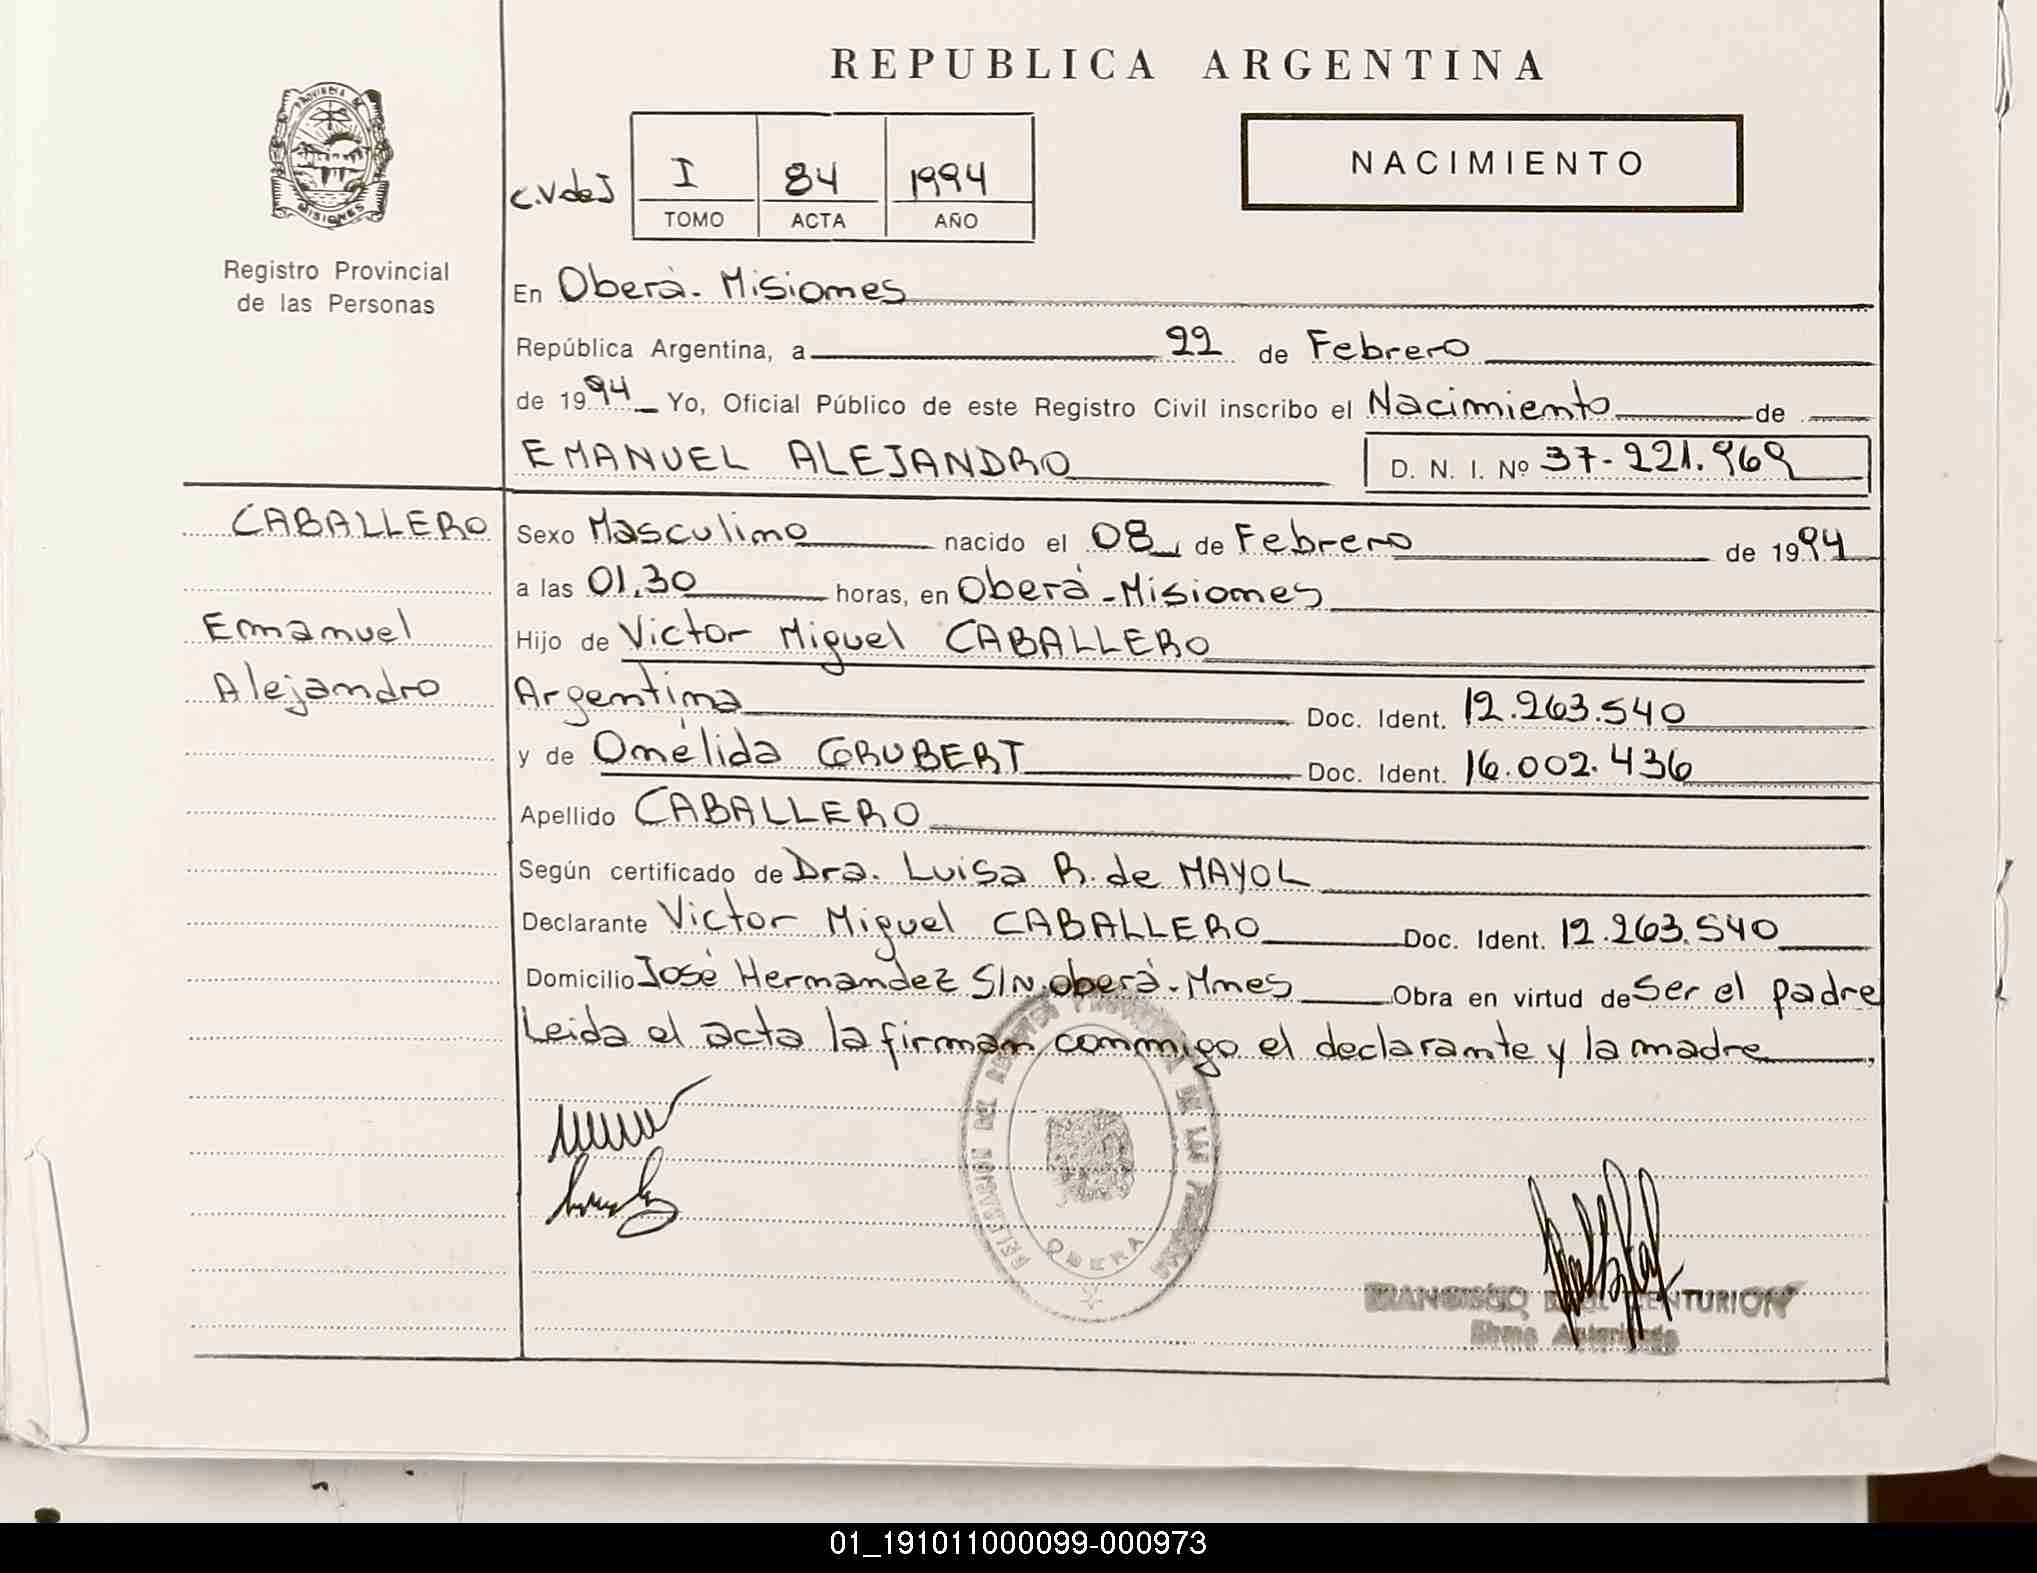 REPUBLICA ARGENTINA
PROVINCIA DE
MISIONES
Registro Provincial
de las Personas
C.V de J
I 84 1994
TOMO ACTA AÑO
NACIMIENTO
En Oberá - Misiones
República Argentina, a 22 de Febrero
de 1994 Yo, Oficial Público de este Registro Civil inscribo el Nacimiento de
EMANUEL ALEJANDRO D. N. I. Nº 37-221.969
CABALLERO
Emanuel
Alejandro
Sexo Masculino nacido el 08 de Febrero de 1994
a las 01,30 horas, en Oberá - Misiones
Hijo de Victor Miguel CABALLERO
Argentina Doc. Ident. 12.263.540
y de Onélida GRUBERT Doc. Ident. 16.002.436
Apellido CABALLERO
Según certificado de Dra. Luisa R. de MAYOL
Declarante Victor Miguel CABALLERO Doc. Ident. 12.263.540
Domicilio José Hernandez S/N. Oberá - Mnes Obra en virtud de Ser el padre
Leida el acta la firman conmigo el declarante y la madre,
OBERA
FRANCISCO CENTURION
Firma Autorizada
01_191011000099-000973